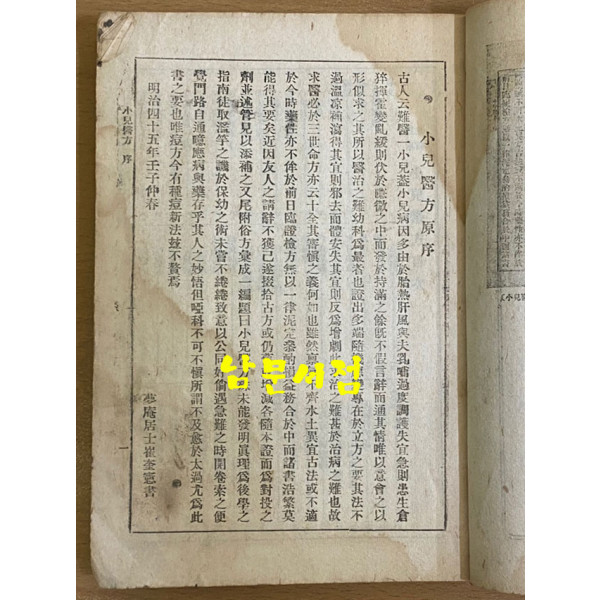 小兒醫方原序
古人云難醫一小兒蓋小兒病因多由於胎熱肝風與夫乳哺過度調護失宜急則患生倉
猝揮霍變亂緩則伏於曖微之中而發於持滿之餘旣不假言辭而通其情唯以意會之以
形似求之其所以醫治之難幼科爲最者也證出多端隨 專在於立方之要其法不
過溫凉補瀉得其宜則邪去而體安失其宜則反爲增劇此 治之難甚於治病之難也故
求醫必於三世命方亦云十全其審愼之義何如也雖然 不齊水土異宜古法或不適
於今時藥性亦不侔於前日臨證檢方無以一律泥定 酌損益務合於中而諸書浩繁莫
能得其要矣近因友人之請辭不獲已遂掇拾古方或仍 增減各隨本證而爲對投之
劑並述管見以添補之又尾附俗方彙成一編題曰小兒 未能發明眞理爲後學之
指南徒取濫竽之譏於保幼之術未嘗不繾綣致意以公同好倘遇急難之時開卷索之便
覺門路自通噫應病與藥存乎其人之妙悟但啞科不可不愼所謂不及愈於太過尤爲此
書之要也唯痘方今有種痘新法玆不贅焉
明治四十五年壬子仲春
夢庵居士崔奎憲書
小兒醫方 序
一
남문서점